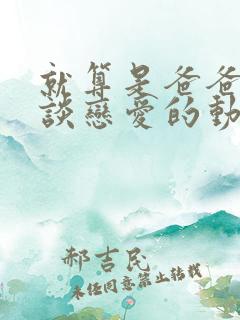 就算是爸爸
談戀愛的動
郝吉民
未經同意禁止轉載